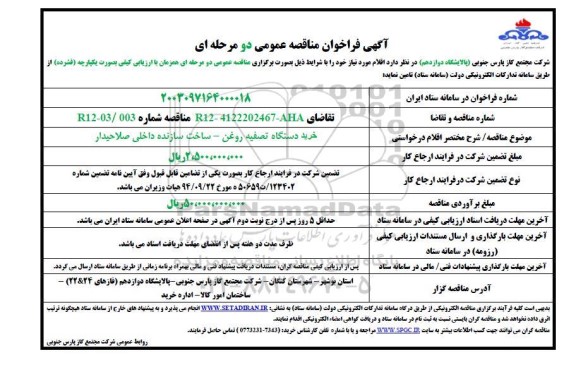 آگهی فراخوان مناقصه عمومی دو مرحله ای
شرکت مجتمع گاز پارس جنوبی (پالایشگاه دوازدهم) در نظر دارد اقلام مورد نیاز خود را با شرایط ذیل بصورت برگزاری مناقصه عمومی دو مرحله ای همزمان با ارزیابی کیفی بصورت یکپارچه (فشرده) از
طریق سامانه تدارکات الکترونیکی دولت (سامانه ستاد) تامین نماید:
شماره فراخوان در سامانه ستاد ایران
۲۰۰۳۰۹۷۱۶۴۰۰۰۰۱۸
شماره مناقصه و تقاضا
تقاضای R12- 4122202467-AHA مناقصه شماره R12-03/ 003
موضوع مناقصه/ شرح مختصر اقلام درخواستی
خرید دستگاه تصفیه روغن – ساخت سازنده داخلی صلاحیدار
مبلغ تضمین شرکت در فرایند ارجاع کار
۲،۵۰۰،۰۰۰،۰۰۰ریال
نوع تضمین شرکت درفرایند ارجاع کار
تضمین شرکت در فرایند ارجاع کار بصورت یکی از تضامین قابل قبول وفق آیین نامه تضمین شماره
۱۲۳۴۰۲/ت۵۰۶۵۹ه مورخ ۹۴/۰۹/۲۲ هیات وزیران می باشد.
مبلغ برآوردی مناقصه
۵۰،۰۰۰،۰۰۰،۰۰۰ریال
آخرین مهلت دریافت اسناد ارزیابی کیفی در سامانه ستاد
حداقل ۵ روز پس از درج نوبت دوم آگهی در صفحه اعلان عمومی سامانه ستاد ایران می باشد.
آخرین مهلت بارگذاری و ارسال مستندات ارزیابی کیفی
(رزومه) در سامانه ستاد
ظرف مدت دو هفته پس از انقضای مهلت دریافت اسناد می باشد.
آخرین مهلت بارگذاری پیشنهادات فنی / مالی در سامانه ستاد
پس از ارزیابی کیفی مناقصه گران، مستندات دریافت پیشنهاد فنی و مالی بهمراه برنامه زمانی از طریق سامانه ستاد ارسال می گردد.
آدرس مناقصه گزار
استان بوشهر – شهرستان کنگان – شرکت مجتمع گاز پارس جنوبی –پالایشگاه دوازدهم (فازهای ۲۴&۲۲) –
ساختمان امور کالا– اداره خرید
بدیهی است کلیه فرآیند برگزاری مناقصه الکترونیکی از طریق درگاه سامانه تدارکات الکترونیکی دولت (سامانه ستاد) به نشانی: WWW.SETADIRAN.IR انجام می پذیرد و به پیشنهاد های خارج از سامانه ستاد هیچگونه ترتیب
اثری داده نخواهد شد و مناقصه گران بایستی نسبت به ثبت نام در سامانه ستاد و دریافت گواهی امضاء الکترونیکی اقدام نمایند.
مناقصه گران می توانند جهت کسب اطلاعات بیشتر به سایت WWW.SPGC.IR مراجعه و یا با شماره تلفن کارشناس خرید: (7343-0773231) تماس حاصل فرمایند.
روابط عمومی شرکت مجتمع گاز پارس جنوبی